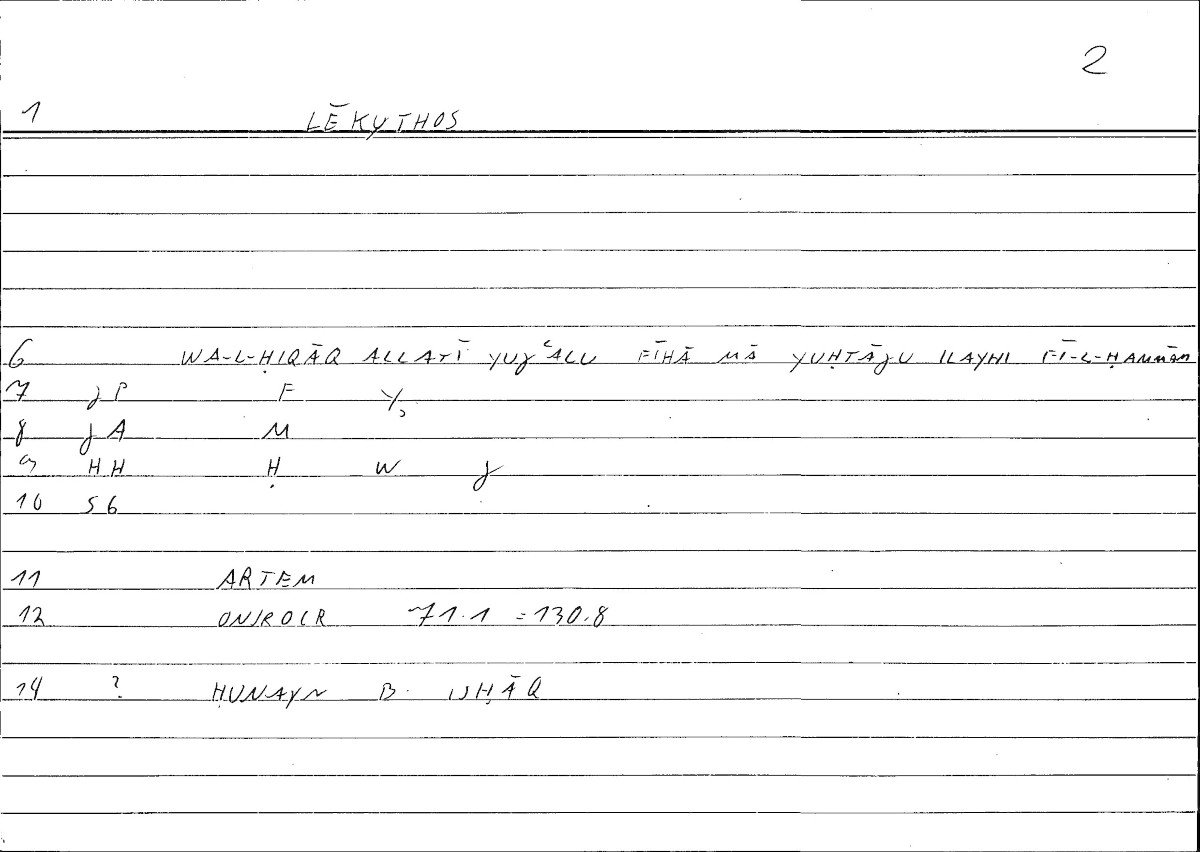 2
1 LĒKYTHOS
6 WA-L-ḤIQĀQ ALLATĪ YUJʿALU FĪHĀ MĀ YUḤTĀJU ILAYHI FĪ-L-ḤAMMĀM
7 JP F Y,
8 JA M
9 HH Ḥ W J
10 S6
11 ARTEM
12 ONIROCR 71.1 = 130.8
14 ? ḤUNAYN B. ISḤĀQ